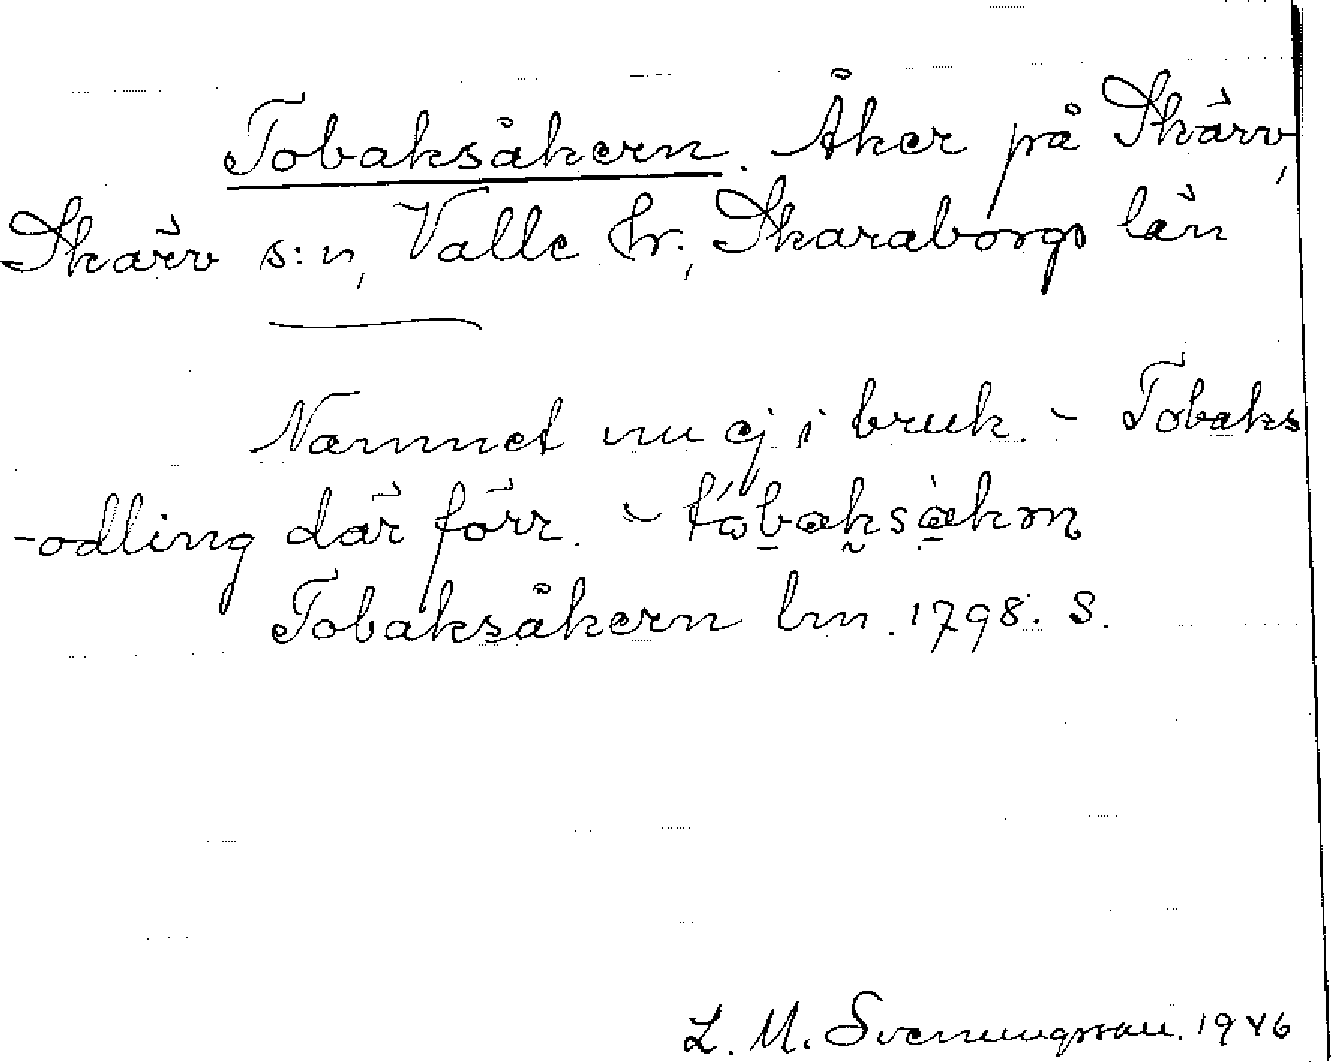 Tobaksåkern. Åker på Skärv,
Skärv s:n, Valle hr., Skaraborgs län
Namnet nu ej i bruk. - Tobaks
-odling där förr. -
Tobaksåkern lm. 1798. S.
L. M. Svenungsson. 1946